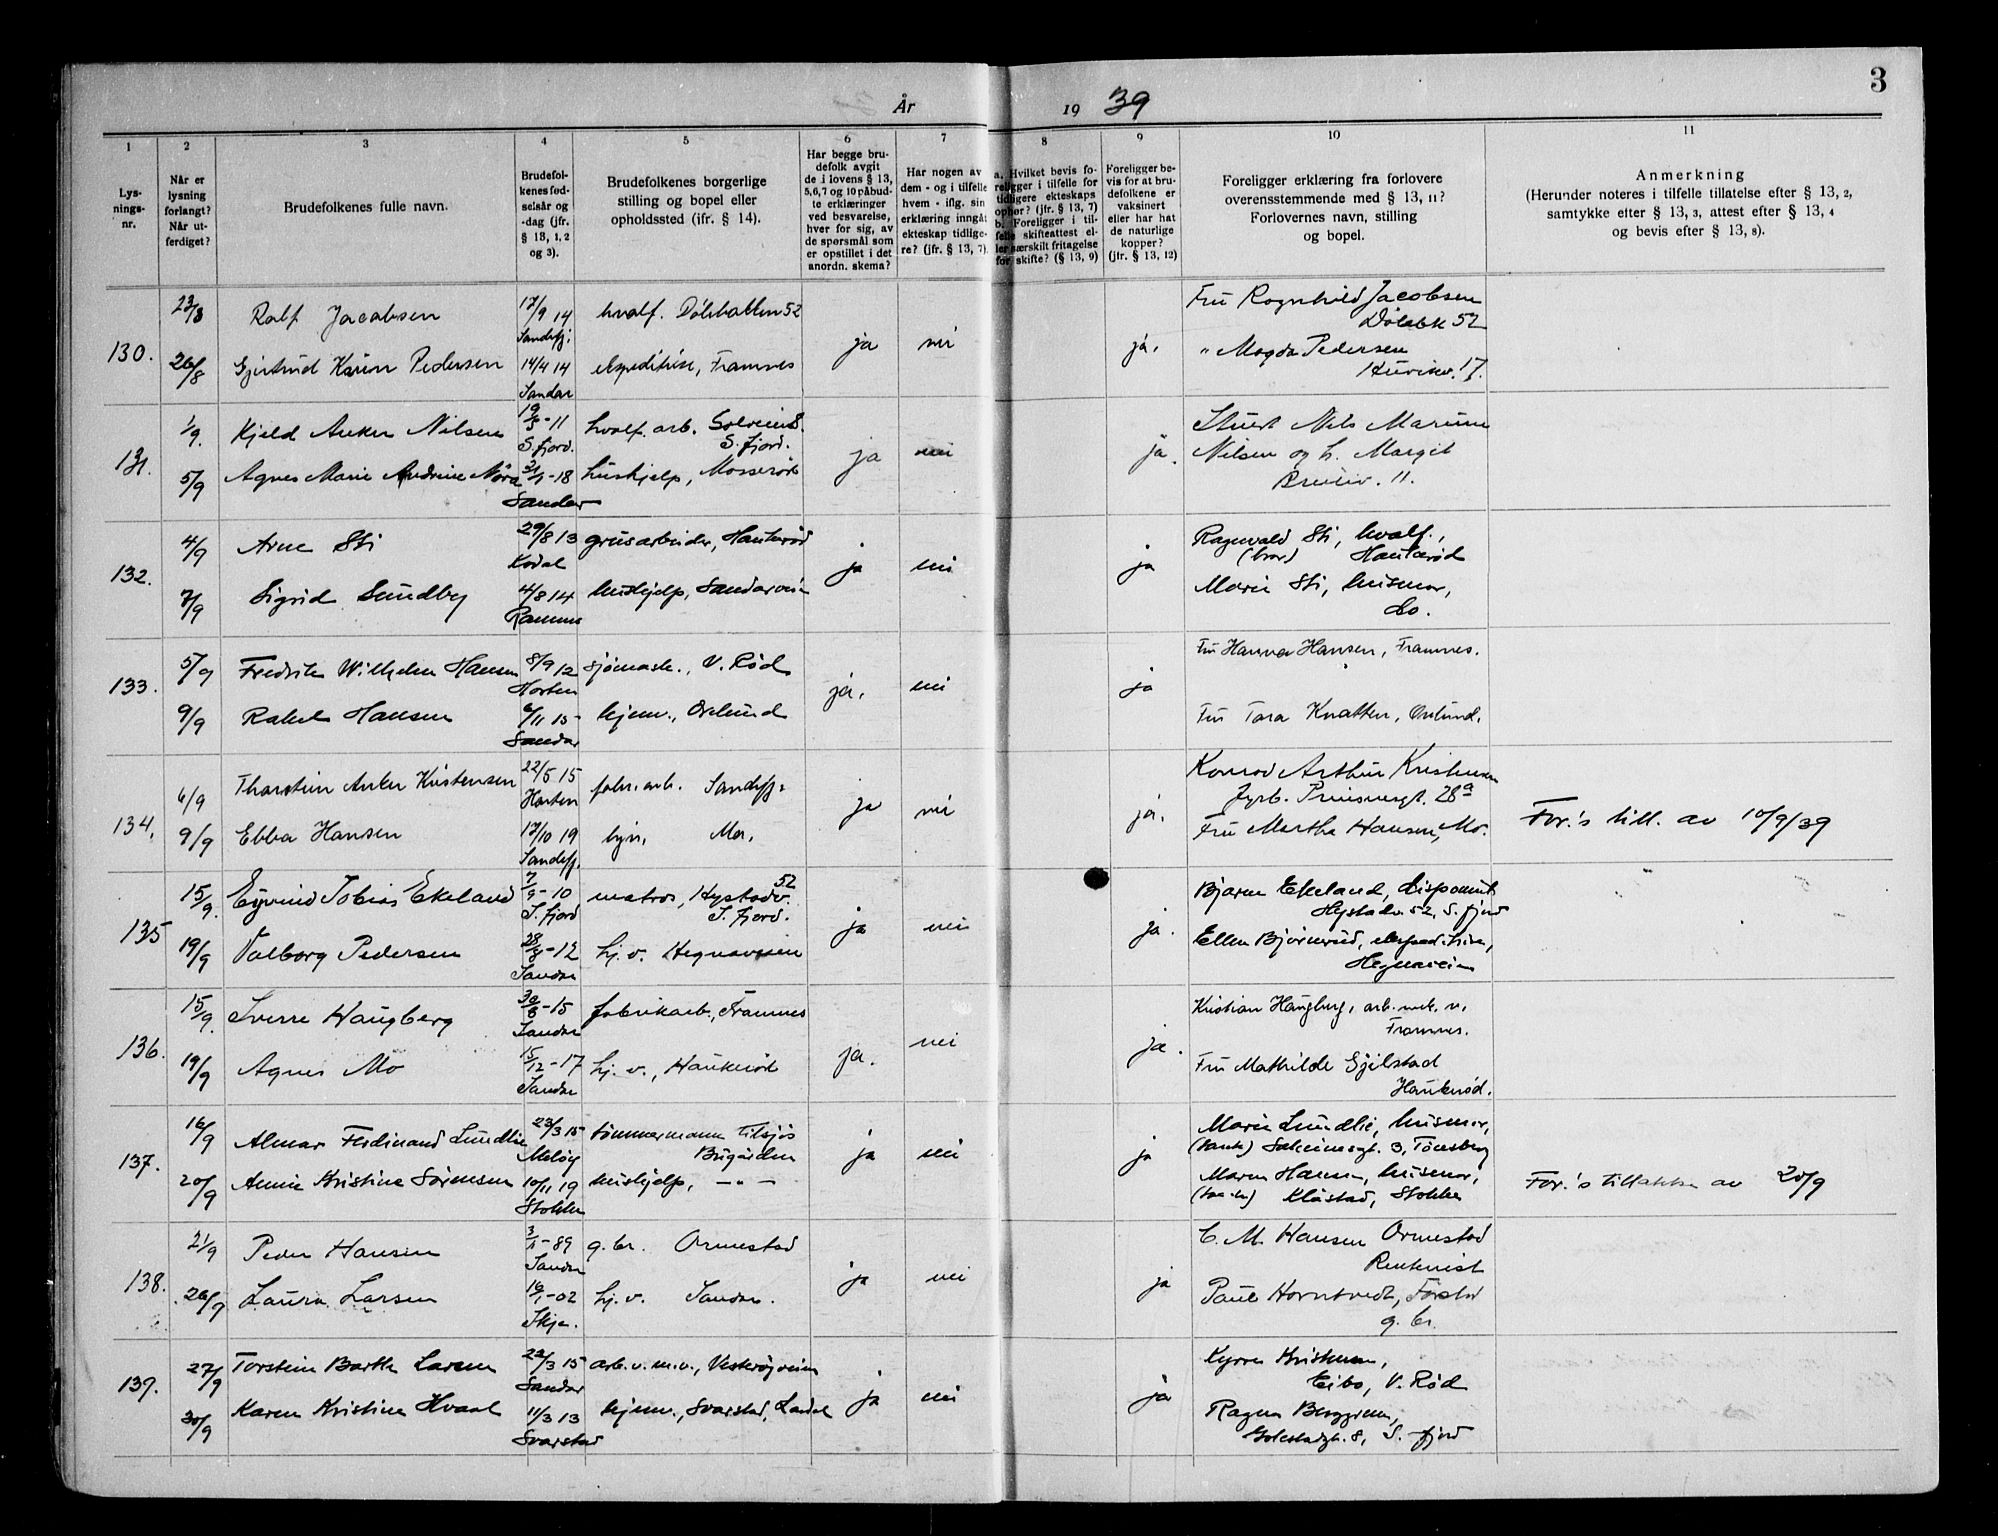 3
År 1939
1 2 3 4 5 6 7 8 9 10 11
Lysnings-nr.
Når er lysning forlangt? Når utferdiget?
Brudefolkenes fulle navn.
Brudefolkenes fødselsår og -dag (jfr. § 13, 1, 2 og 3).
Brudefolkenes borgerlige stilling og bopel eller opholdssted (ifr. § 14).
Har begge brudefolk avgit de i lovens § 13, 5, 6, 7 og 10 påbudte erklæringer ved besvarelse, hver for sig, av de spørsmål som er opstillet i det anordn. skema?
Har nogen av dem - og i tilfelle hvem - iflg. sin erklæring inngåt ekteskap tidligere? (jfr. § 13, 7).
a. Hvilket bevis foreligger i tilfelle for tidligere ekteskaps ophør? (jfr. § 13, 7) b. Foreligger i tilfelle skifteattest eller særskilt fritagelse for skifte? (§ 13, 9)
Foreligger bevis for at brudefolkene er vaksinert eller har hat de naturlige kopper? (jfr. § 13, 12)
Foreligger erklæring fra forlovere overensstemmende med § 13, 11? Forlovernes navn, stilling og bopel.
Anmerkning (Herunder noteres i tilfelle tillatelse efter § 13, 2, samtykke efter § 13, 3, attest efter § 13, 4 og bevis efter § 13, 8).
130. 23/8 Ralf Jacobsen 17/9 14 Sandefj. hvalf. Dølebakken 52 ja nei ja. Fru Ragnhild Jacobsen
Dølebk 52
26/8 Gjertrud Karin Pedersen 14/4 14 Sandar ekspeditrise, Framnes " Magda Pedersen
17.
131. 1/9. Kjeld Anker Nilsen 11 S.fjord. hvalf. arb. S.fjord. ja nei ja. Stuert Nils Marius
5/9 Agnes Marie Andrine 18 Sandar hushjelp, Mosserød Nilsen og h. Margit
11.
132. 4/9 Arne Sti 29/8 13 Kodal grusarbeider, Haukerød ja nei ja Ragnvald Sti, hvalf.,
(bror) Haukerød
7/9 Sigrid Sundby 4/8 14 Ramnes hushjelp, Sandarveien Marie Sti, husmor,
do.
133. 5/9 Fredrik Wilhelm Hansen 8/9 12 Horten sjømask., V. Rød ja. nei ja Fru Hanna Hansen, Framnes.
9/9 Rakel Hansen 6/11 15 Sandar hjem., Orelund Fru Tora Knatten, Orelund.
134. 6/9 Thorstein Anker Kristensen 22/5 15 Horten fabr. arb. Sandefj. ja nei ja. Konrad Arthur Kristensen
fyrb. Prinsensgt. 28a
9/9 Ebba Hansen 17/10 19 Sandefj. hjv. Mo. Fru Martha Hansen, Mo. For.'s till. av 10/9/39
135 15/9. Eyvind Tobias Ekeland 10 S.fjord matros, Hystadv. 52 S.fjord. ja nei ja. Bjarne Ekeland, disponent
Hystadv. 52, S.fjord
19/9 Valborg Pedersen 12 Sandar hj.v. Hegnaveien Ellen Bjørnerud, ekspeditrise,
Hegnaveien
136. 15/9. Sverre Haugberg 15 Sandar fabrikarb., Framnes ja. nei ja. Kristian Haugberg, arb. mek. v.
Framnes.
19/9 Agnes Mo 15/12-17 Sandar hj.v., Haukerød Fru Mathilde Gjilstad
Haukerød.
137. 16/9 Almar Ferdinand Lundlie 23/3 15 Meløy tømmermann tilsjøs Bugården ja nei ja Marie Lundlie, husmor,
(tante) 3, Tønsberg
20/9 Annie Kristine Sørensen 10/11 19 Stokke hushjelp, — " — Maren Hansen, husmor,
Klåstad, Stokke For.'s tillatelse av 20/9
138. 21/9 Peder Hansen 89 Sandar g.br. Ormestad ja nei ja C. M. Hansen Ormestad
26/9 Laura Larsen 02 Skje. hj.v. Sandar. Paul Horntvedt,
g.br.
139. 27/9 Torstein Barth Larsen 22/3 15 Sandar arb.v.m.v., Vesterøyveien ja nei ja Kyrre Kristensen,
Eibo, V. Rød
30/9 Karen Kristine Hvaal 11/3 13 Svarstad hjem., Svarstad, Lardal Ragna Berggren,
8, S.fjord